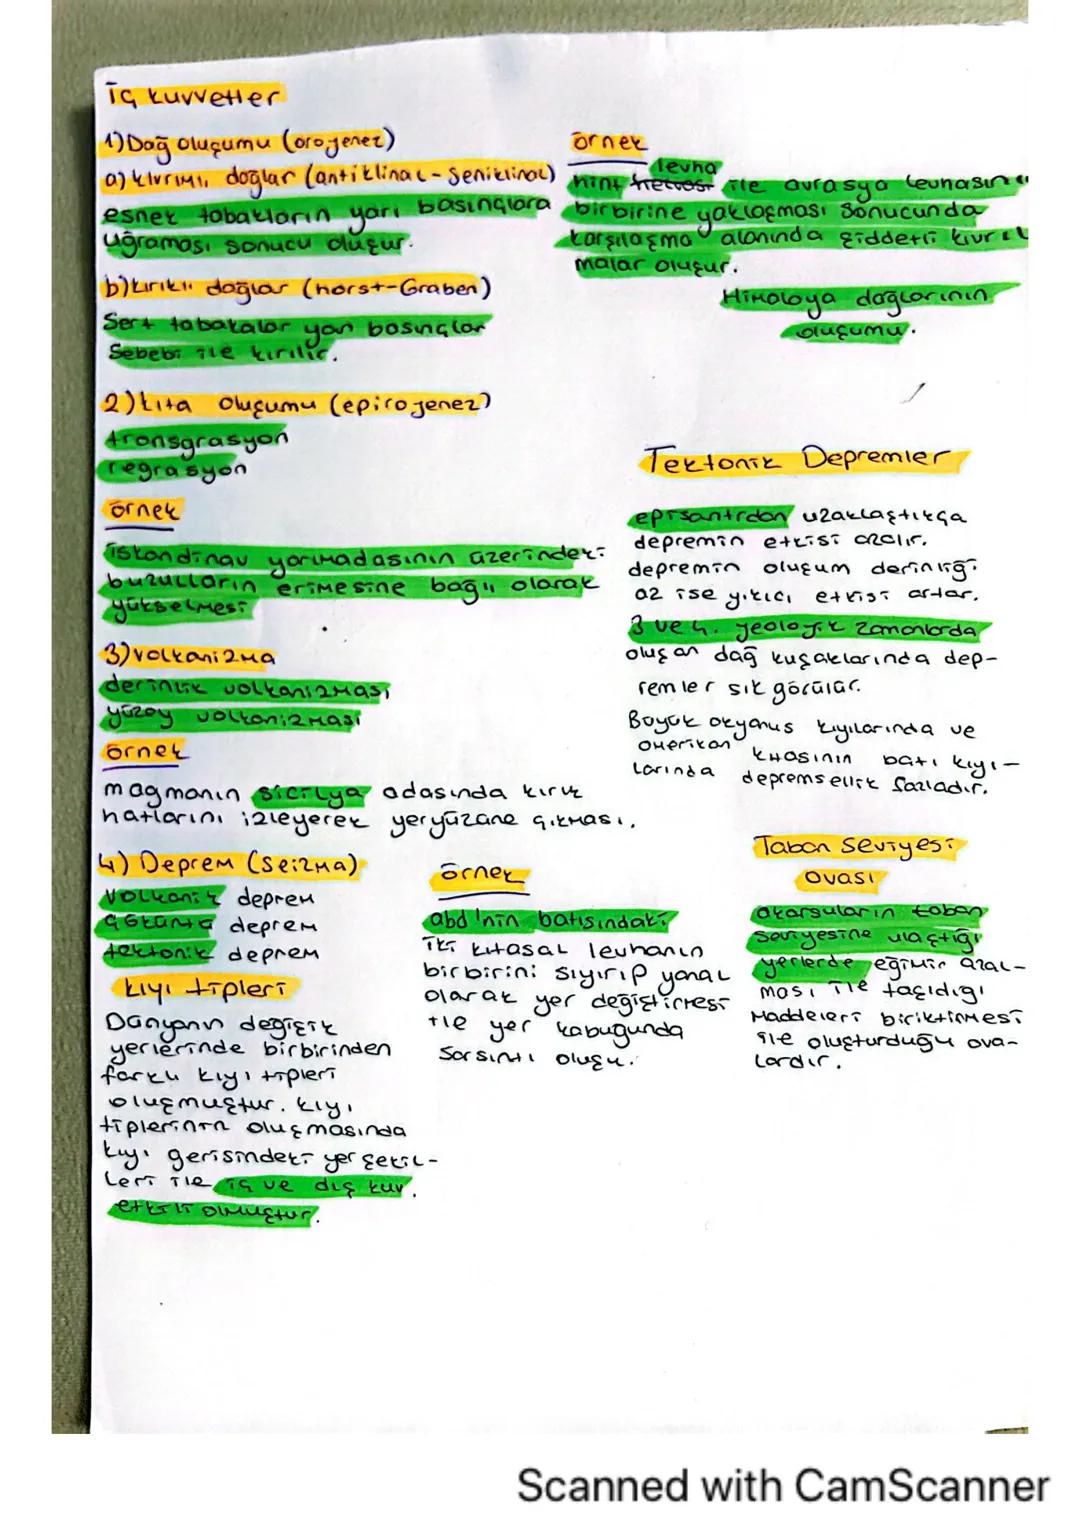 İç kuvvetler
1) Dağ oluşumu (orojenez)
a) kıvrımlı dağlar (antiklinal - Seniklinal)
esnek tabakların yan basınçlara
uğraması sonucu oluşur.
b) kırıklı dağlar (horst-Graben)
Sert tabakalar yan basınçlar
Sebebi ile kırılır.
örnek
levha
hint ile avrasya levhasın
birbirine yaklaşması sonucunda
karşılaşma alanında şiddetli kıvrıl
malar oluşur.
Himalaya dağlarının
oluşumu.
2) kıta oluşumu (epirojenez)
transgrasyon
regrasyon
örnek
iskandinav yarımadasının üzerindeki
buzulların erimesine bağlı olarak
yükselmesi
3) volkanizma
derinlik volkanizması
yüzey volkanizması
örnek
magmanın sicilya adasında kırık
hatlarını izleyerek yeryüzüne çıkması.
Tektonik Depremler
episantrdan uzaklaştıkça
depremin etkisi azalır.
depremin oluşum derinliği
az ise yıkıcı etkisi artar.
3 ve 4. jeolojik zamanlarda
oluşan dağ kuşaklarında dep-
remler sık görülür.
Büyük okyanus kıyılarında ve
amerikan kıtasının batı kıyı-
larında depremsellik fazladır.
4) Deprem (Seizma)
Volkanik deprem
Göküntü deprem
tektonik deprem
örnek
abd'nin batısındaki
iki kıtasal levhanın
birbirini sıyırıp yanal
olarak yer değiştirmesi
ile yer kabuğunda
Sarsıntı oluşu.
Taban seviyesi
ovası
akarsuların taban
seviyesine ulaştığı
yerlerde eğimin azal-
ması ile taşıdığı
maddeleri biriktirmesi
ile oluşturduğu ova-
lardır.
kıyı tipleri
Dünyanın değişik
yerlerinde birbirinden
farklı kıyı tipleri
oluşmuştur. kıyı
tiplerinin oluşmasında
kıyı gerisindeki yer şekil-
leri ile iç ve dış kuv.
etkili olmuştur.
Scanned with CamScanner